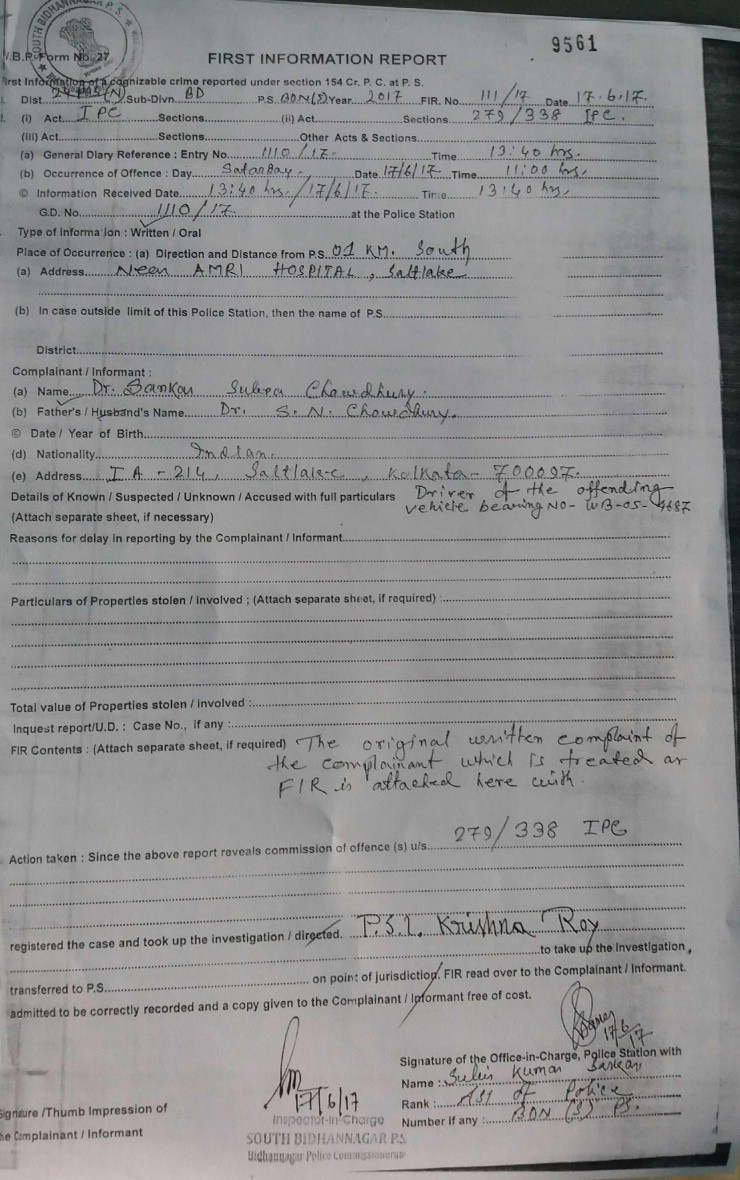 SOUTH BIDHANNAGAR P.S.
9561
W.B.P. Form No. 27
FIRST INFORMATION REPORT
First Information of a cognizable crime reported under section 154 Cr. P. C. at P. S.
Dist. 24 PGS(N) Sub-Divn. BD P.S. BDN(S) Year 2017 FIR. No. 111/17 Date 17.6.17.
(i) Act IPC Sections (ii) Act Sections 279/338 IPC.
(iii) Act Sections Other Acts & Sections
(a) General Diary Reference : Entry No. 1110/17. Time 13:40 hrs.
(b) Occurrence of Offence : Day Saturday Date 17/6/17 Time 11:00 hrs.
© Information Received Date 13:40 hrs/17/6/17. Time 13:40 hrs.
G.D. No. 1110/17. at the Police Station
Type of Information : Written / Oral
Place of Occurrence : (a) Direction and Distance from P.S. 01 KM. South
(a) Address Near AMRI HOSPITAL, Saltlake
(b) In case outside limit of this Police Station, then the name of P.S.
District
Complainant / Informant :
(a) Name Dr. Sankar Chowdhury.
(b) Father's / Husband's Name Dr. S. N. Chowdhury.
© Date / Year of Birth
(d) Nationality Indian.
(e) Address IA - 214, Saltlake, Kolkata - 700097.
Details of Known / Suspected / Unknown / Accused with full particulars Driver of the offending
(Attach separate sheet, if necessary) vehicle bearing NO- WB-05-
Reasons for delay in reporting by the Complainant / Informant
Particulars of Properties stolen / involved ; (Attach separate sheet, if required) :
Total value of Properties stolen / involved :
Inquest report/U.D. : Case No., if any :
FIR Contents : (Attach separate sheet, if required) The original written complaint of
the complainant which is treated as
FIR is attached here with.
Action taken : Since the above report reveals commission of offence (s) u/s. 279/338 IPC
registered the case and took up the investigation / directed. P.S.I. Krishna Roy
to take up the Investigation,
transferred to P.S. on point of jurisdiction. FIR read over to the Complainant / Informant.
admitted to be correctly recorded and a copy given to the Complainant / Informant free of cost.
17/6/17
Signature of the Office-in-Charge, Police Station with
Name : Kumar Sarkar
17/6/17
Rank : ASI of Police
Signature /Thumb Impression of
Inspector-In-Charge
Number if any : BDN (S) PS.
the Complainant / Informant
SOUTH BIDHANNAGAR P.S.
Bidhannagar Police Commissionerate